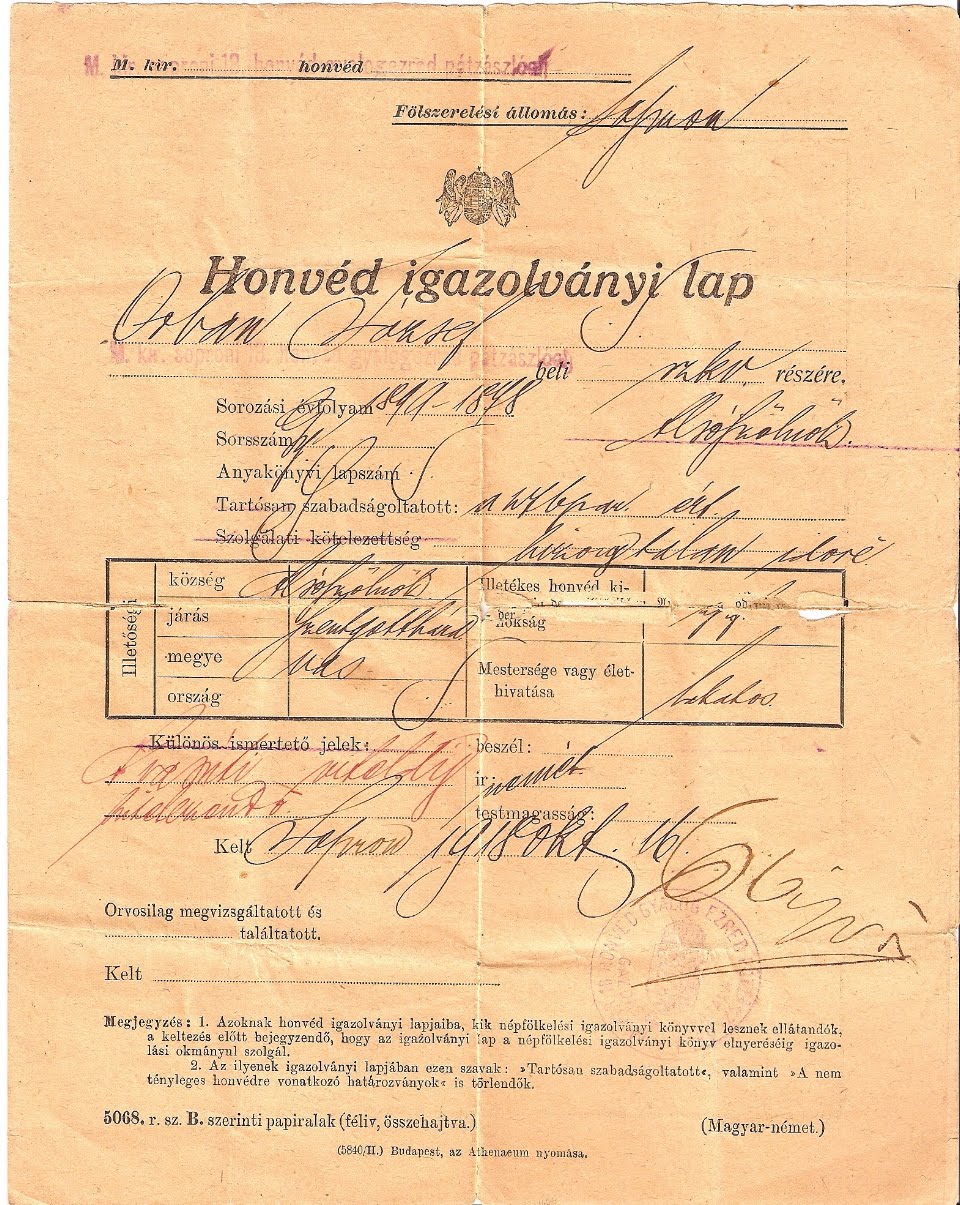 M. kir. honvéd
Fölszerelési állomás: Sopron
Honvéd igazolványi lap
Orbán József
M. kir. soproni 18. pótzászlóalj
beli szkv. részére.
Sorozási évfolyam 1899-1898
Alsószölnök.
Sorsszám
Anyakönyvi lapszám
Tartósan szabadságoltatott:
Szolgálati kötelezettség
Illetőségi
község Alsószölnök
járás Szentgotthard
megye Vas
ország
Illetékes honvéd ki-
nokság
Mestersége vagy élet-
hivatása lakatos.
Különös ismertető jelek:
beszél:
ir német
testmagasság:
Kelt Sopron 1918 okt. 16
Orvosilag megvizsgáltatott és
találtatott.
Kelt
HONVÉD GYALOG EZRED
Megjegyzés: 1. Azoknak honvéd igazolványi lapjaiba, kik népfölkelési igazolványi könyvvel lesznek ellátandók,
a keltezés előtt bejegyzendő, hogy az igazolványi lap a népfölkelési igazolványi könyv elnyeréséig igazo-
lási okmányul szolgál.
2. Az ilyenek igazolványi lapjában ezen szavak: »Tartósan szabadságoltatott«, valamint »A nem
tényleges honvédre vonatkozó határozványok« is törlendők.
5068. r. sz. B. szerinti papiralak (féliv, összehajtva.) (Magyar-német.)
(5840/II.) Budapest, az Athenaeum nyomása.